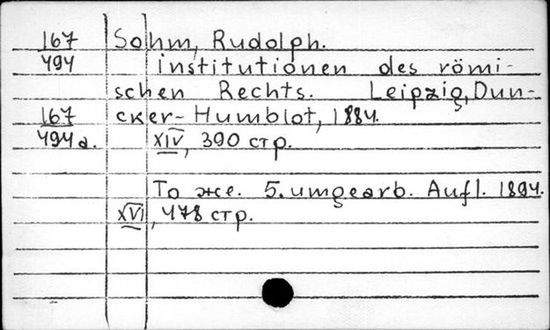 167 Sohm, Rudolph.
494 institutionen des römi-
schen Rechts. Leipzig, Dun-
167 cker-Humblot, 1884.
494a. XIV, 390 стр.
То же. 5. umgearb. Aufl. 1894.
XVI, 478 стр.